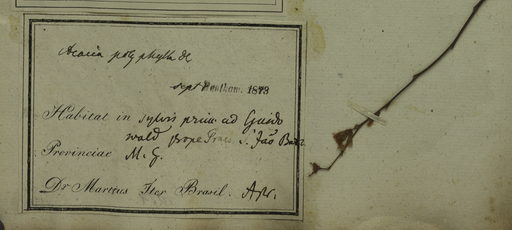 Acacia polyphylla DC
sept Bentham. 1873
Habitat in sylvis primaev ad Guido
wald prope Praes. S. Jão Bat.
Provinciae M. G.
Dr Martius Iter Brasil. Apr.